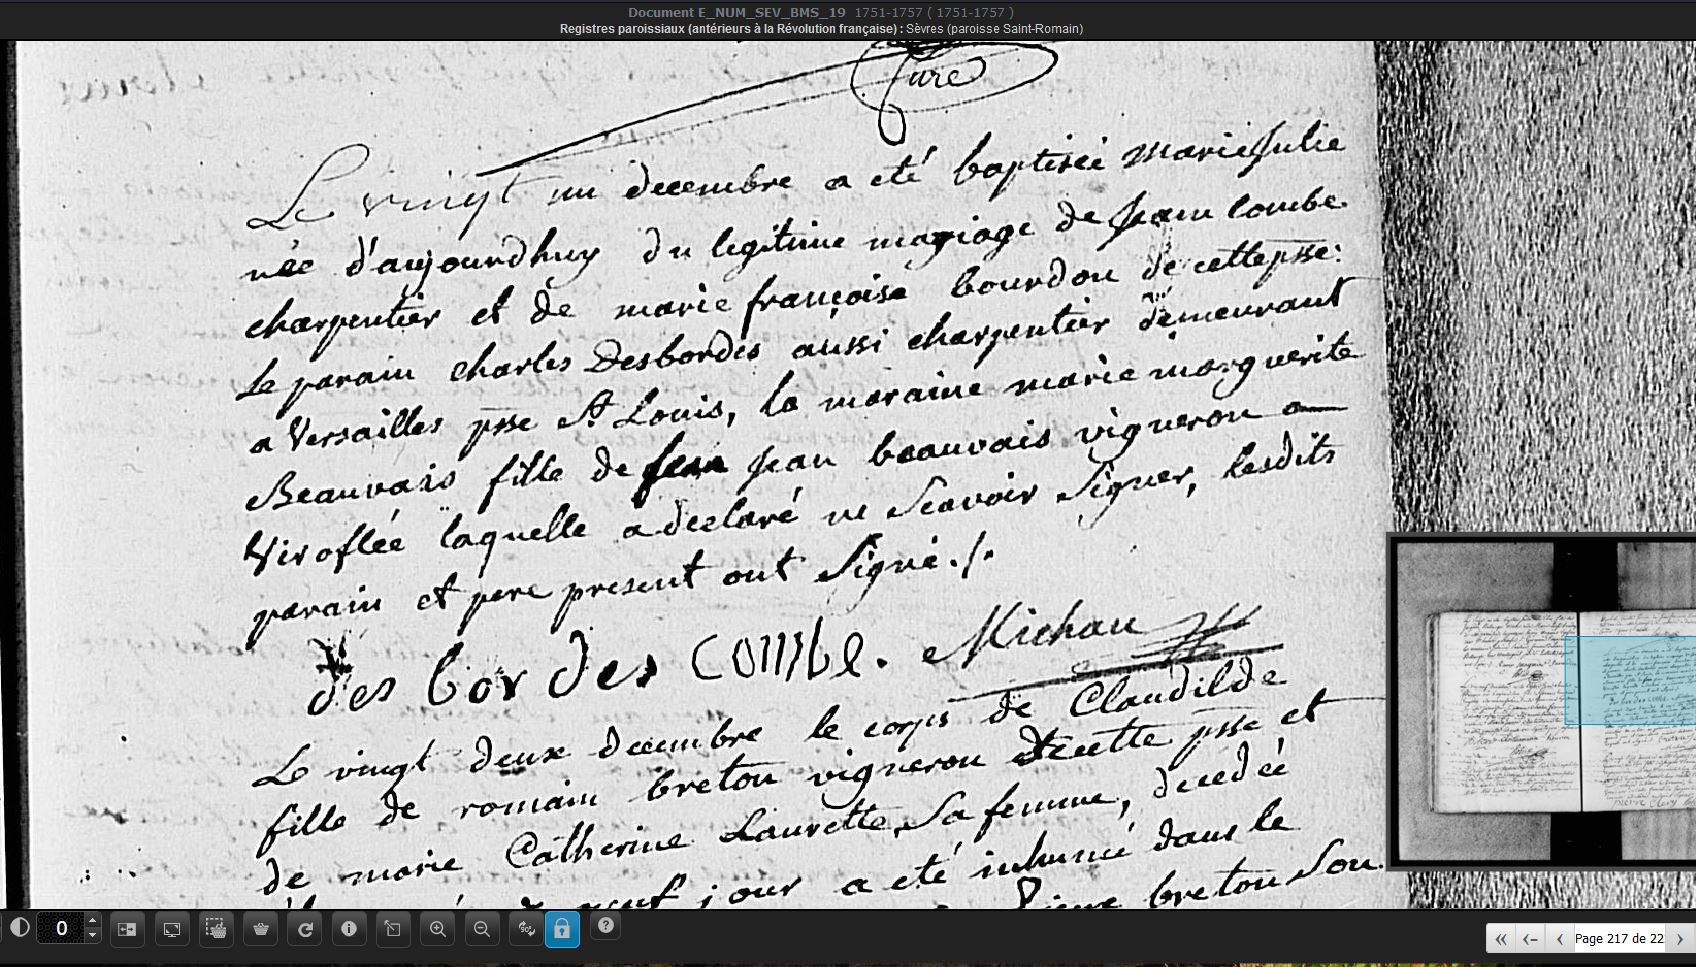 Document E_NUM_SEV_BMS_19 1751-1757 ( 1751-1757 )
Registres paroissiaux (antérieurs à la Révolution française) : Sèvres (paroisse Saint-Romain)
Curé
Le vingt un decembre a eté baptisée marie Julie
née d'aujourdhuy du legitime mariage de Jean Combe
charpentier et de marie françoise bourdon de cette psse:
Le parain charles Desbordes aussi charpentier demeurant
a Versailles psse St Louis, la maraine marie marguerite
Beauvais fille de Jean beauvais vigneron a
Viroflée laquelle a declaré ne Scavoir Signer, lesdits
parain et pere present ont Signé ./.
des bor des Combe. Michau
Le vingt deux decembre le corps de Claudilde
fille de romain breton vigneron de cette psse et
de marie Catherine Laurette Sa femme, decedée
neuf jour a eté inhumé dans le
breton Son
0
Page 217 de 22